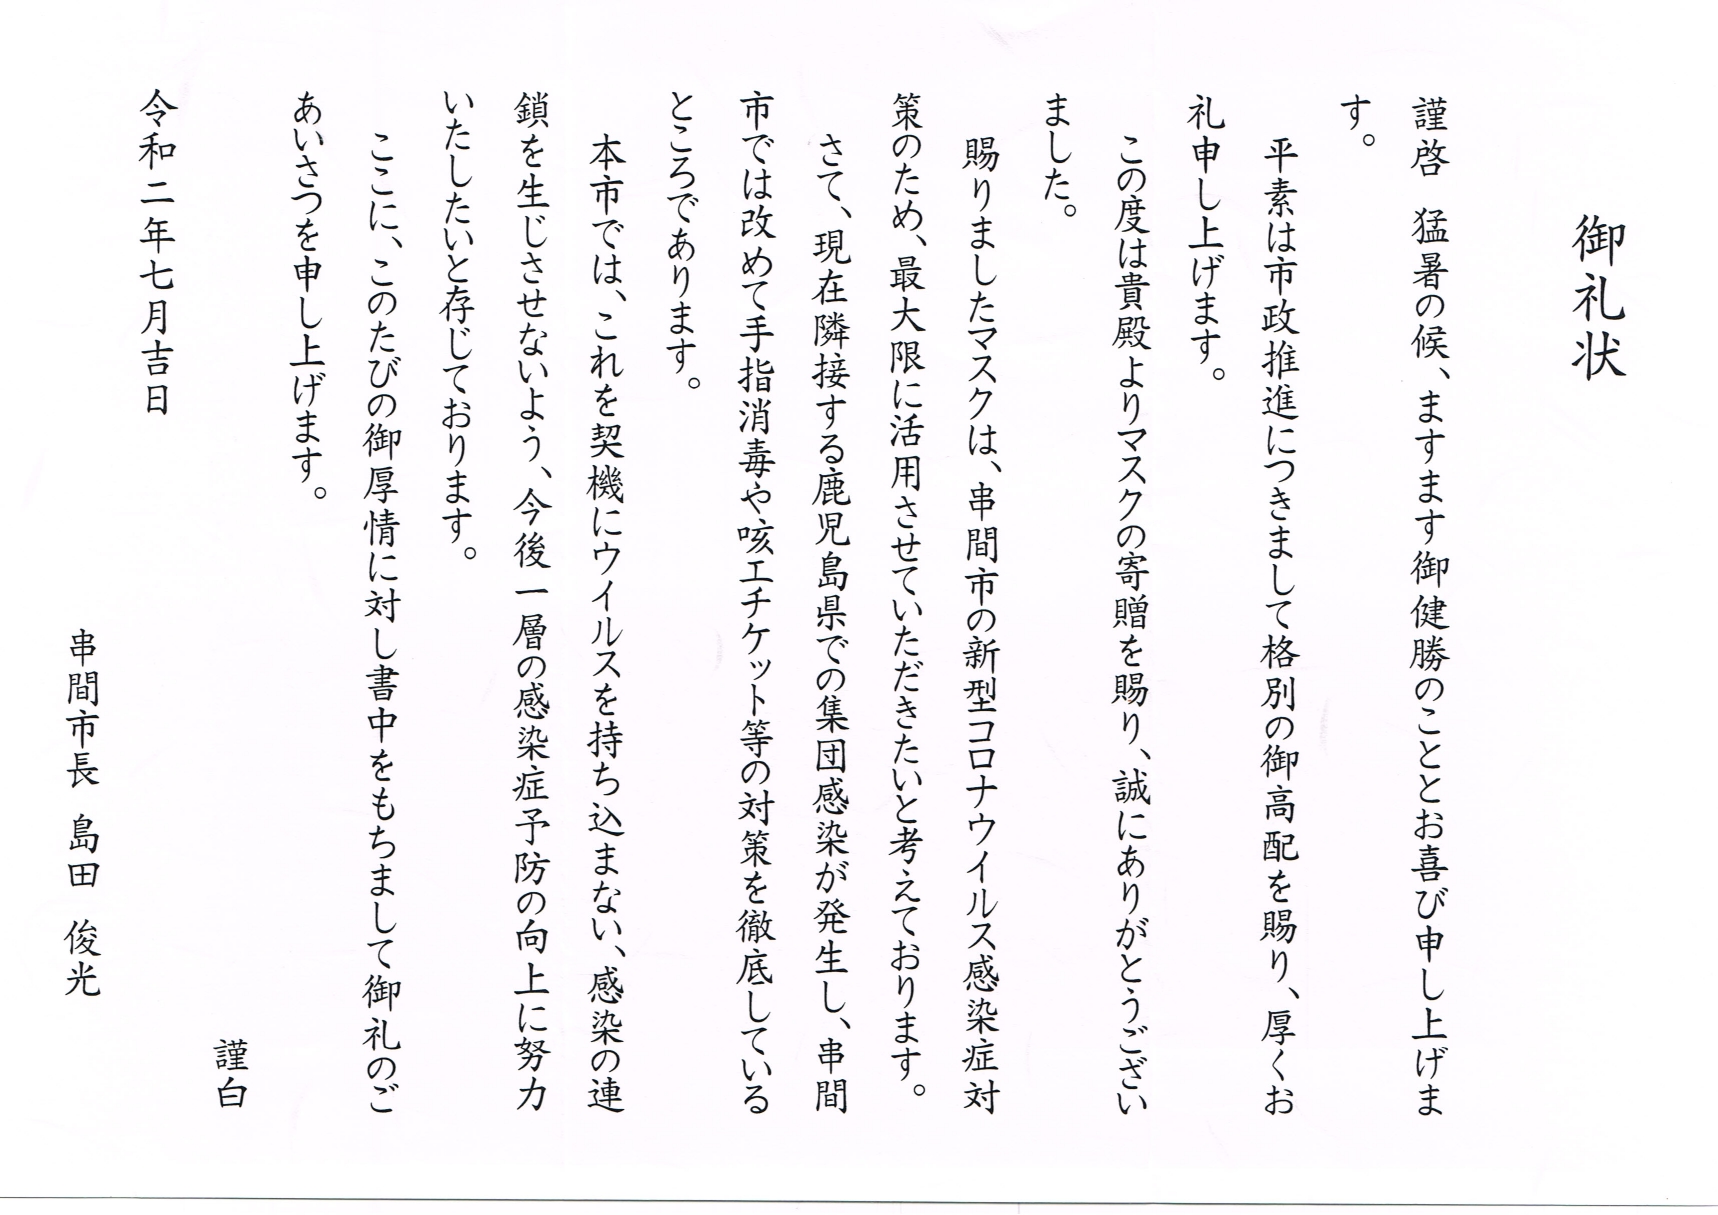 御礼状
謹啓　猛暑の候、ますます御健勝のこととお喜び申し上げま
す。
　平素は市政推進につきまして格別の御高配を賜り、厚くお
礼申し上げます。
　この度は貴殿よりマスクの寄贈を賜り、誠にありがとうござい
ました。
　賜りましたマスクは、串間市の新型コロナウイルス感染症対
策のため、最大限に活用させていただきたいと考えております。
　さて、現在隣接する鹿児島県での集団感染が発生し、串間
市では改めて手指消毒や咳エチケット等の対策を徹底している
ところであります。
　本市では、これを契機にウイルスを持ち込まない、感染の連
鎖を生じさせないよう、今後一層の感染症予防の向上に努力
いたしたいと存じております。
　ここに、このたびの御厚情に対し書中をもちまして御礼のご
あいさつを申し上げます。
謹白
令和二年七月吉日
串間市長　島田　俊光